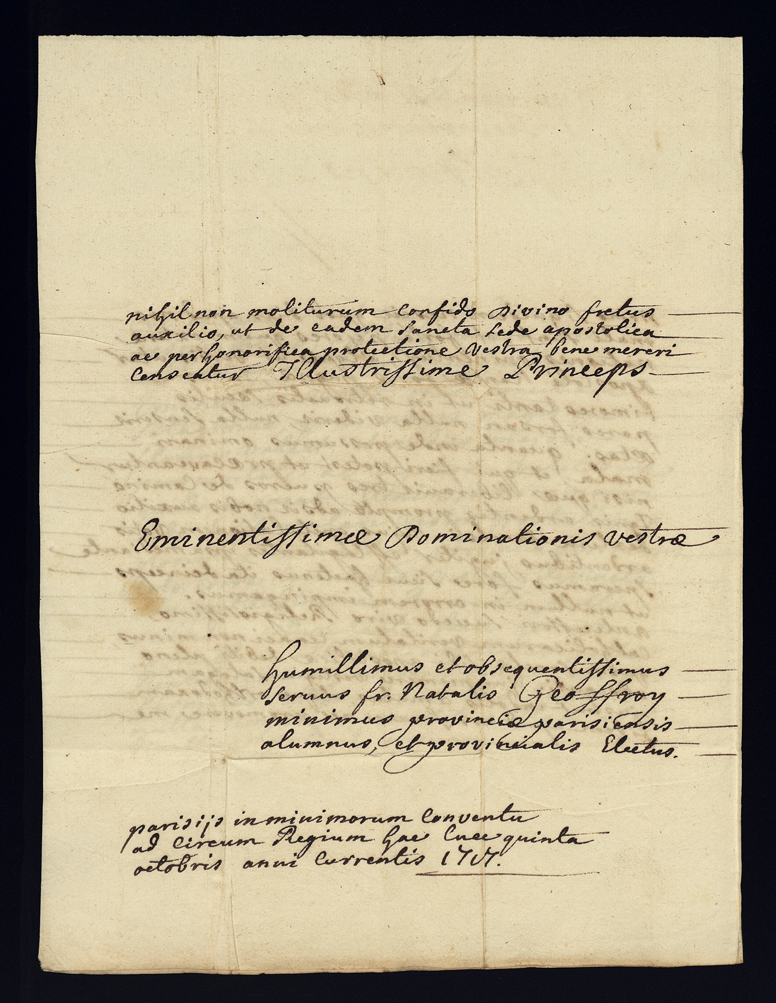 nihil non moliturum confido Divino fretus
auxilio, ut de eadem Sancta Sede apostolica
ac perhonorifica protectione vestra bene mereri
Censeatur Illustrissime Princeps
Eminentissimæ Dominationis vestræ
humillimus et obsequentissimus
servus fr. Natalis Geoffroy
minimus provinciæ parisiensis
alumnus, et provincialis Electus.
parisijs in minimorum Conventu
ad Circum Regium hac Luce quinta
octobris anni Currentis 1717.